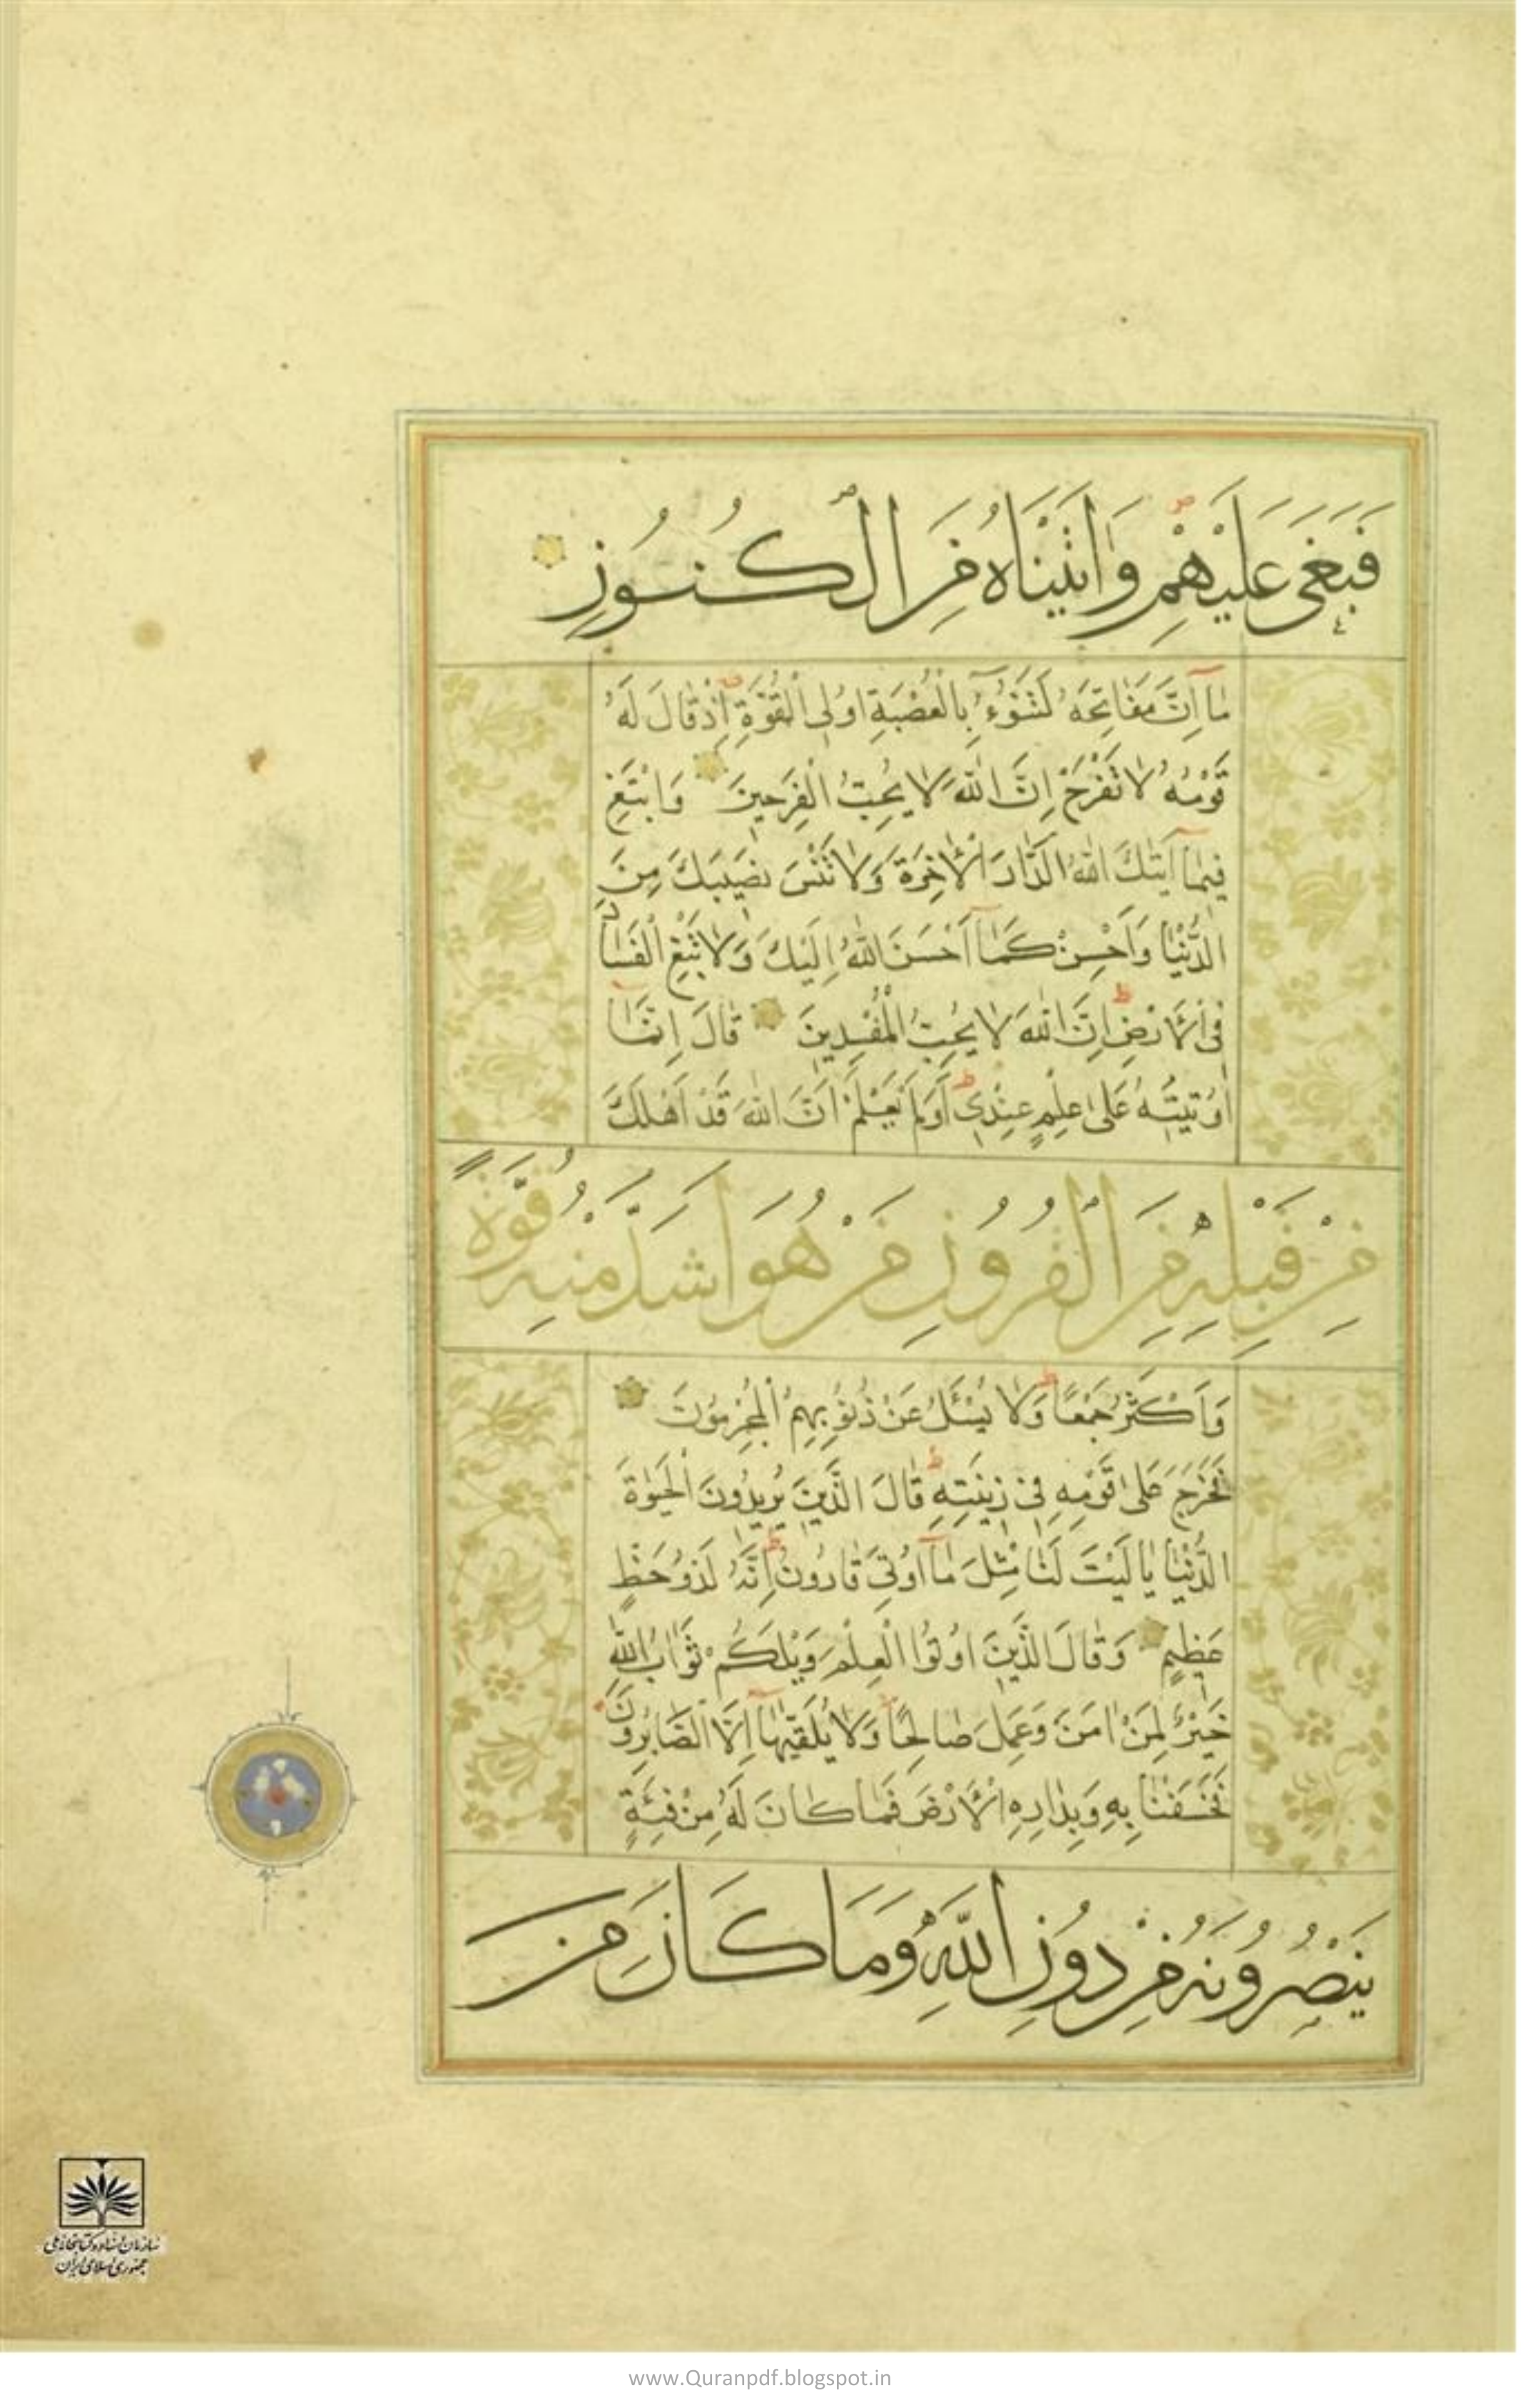 فَبَغَى عَلَيْهِمْ وَاٰتَيْنَاهُ مِنَ الْكُنُوزِ
مَٓا اِنَّ مَفَاتِحَهُ لَتَنُٓوءُ بِالْعُصْبَةِ اُولِى الْقُوَّةِ اِذْ قَالَ لَهُ
قَوْمُهُ لَا تَفْرَحْ اِنَّ اللّٰهَ لَا يُحِبُّ الْفَرِحِينَ وَابْتَغِ
فِيمَٓا اٰتٰيكَ اللّٰهُ الدَّارَ الْاٰخِرَةَ وَلَا تَنْسَ نَصِيبَكَ مِنَ
الدُّنْيَا وَاَحْسِنْ كَمَٓا اَحْسَنَ اللّٰهُ اِلَيْكَ وَلَا تَبْغِ الْفَسَادَ
فِى الْاَرْضِ اِنَّ اللّٰهَ لَا يُحِبُّ الْمُفْسِدِينَ قَالَ اِنَّمَٓا
اُوتِيتُهُ عَلٰى عِلْمٍ عِنْدِى اَوَلَمْ يَعْلَمْ اَنَّ اللّٰهَ قَدْ اَهْلَكَ
مِنْ قَبْلِهِ مِنَ الْقُرُونِ مَنْ هُوَ اَشَدُّ مِنْهُ قُوَّةً
وَاَكْثَرُ جَمْعًا وَلَا يُسْـَٔلُ عَنْ ذُنُوبِهِمُ الْمُجْرِمُونَ
فَخَرَجَ عَلٰى قَوْمِهِ فِى زِينَتِهِ قَالَ الَّذِينَ يُرِيدُونَ الْحَيٰوةَ
الدُّنْيَا يَا لَيْتَ لَنَا مِثْلَ مَٓا اُوتِىَ قَارُونُ اِنَّهُ لَذُو حَظٍّ
عَظِيمٍ وَقَالَ الَّذِينَ اُوتُوا الْعِلْمَ وَيْلَكُمْ ثَوَابُ اللّٰهِ
خَيْرٌ لِمَنْ اٰمَنَ وَعَمِلَ صَالِحًا وَلَا يُلَقّٰيهَٓا اِلَّا الصَّابِرُونَ
فَخَسَفْنَا بِهِ وَبِدَارِهِ الْاَرْضَ فَمَا كَانَ لَهُ مِنْ فِئَةٍ
يَنْصُرُونَهُ مِنْ دُونِ اللّٰهِ وَمَا كَانَ مِنَ
سازمان اسناد و کتابخانه ملی
جمهوری اسلامی ایران
www.Quranpdf.blogspot.in